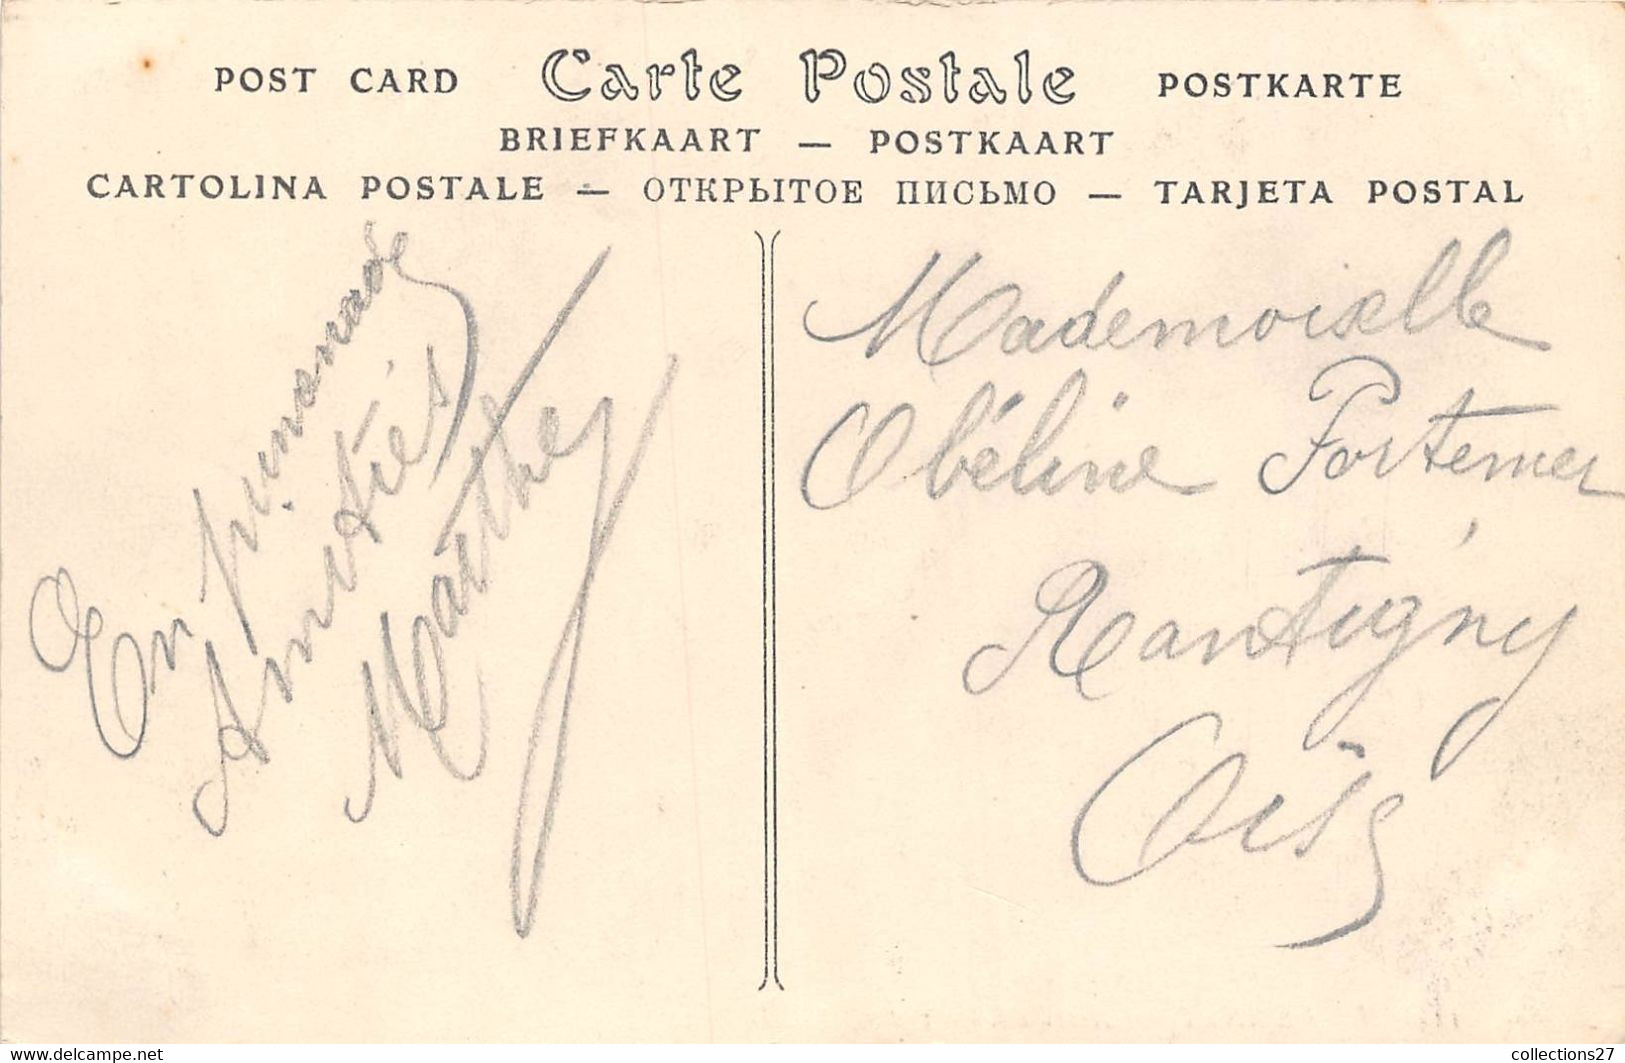 POST CARD Carte Postale POSTKARTE
BRIEFKAART — POSTKAART
CARTOLINA POSTALE — ОТКРЫТОЕ ПИСЬМО — TARJETA POSTAL
En prumanade
Amitiés
Marthe
Mademoiselle
Obéline Portemer
Rantigny
Oise
www.delcampe.net
collections27